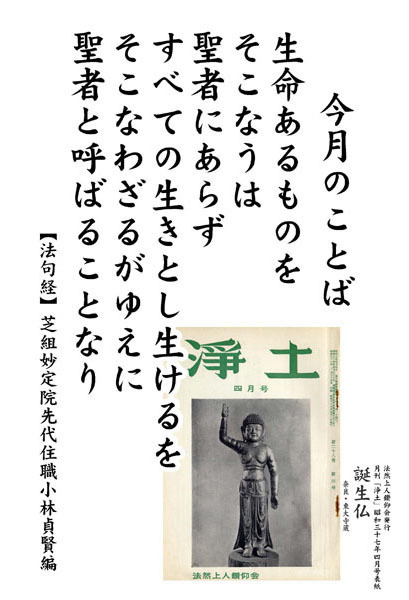 今月のことば
生命あるものを
そこなうは
聖者にあらず
すべての生きとし生けるを
そこなわざるがゆえに
聖者と呼ばることなり
【法句経】芝組妙定院先代住職小林貞賢編
浄土
四月号
法然上人鑽仰会
法然上人鑽仰会発行
月刊「浄土」昭和三十七年四月号表紙
誕生仏
奈良・東大寺蔵